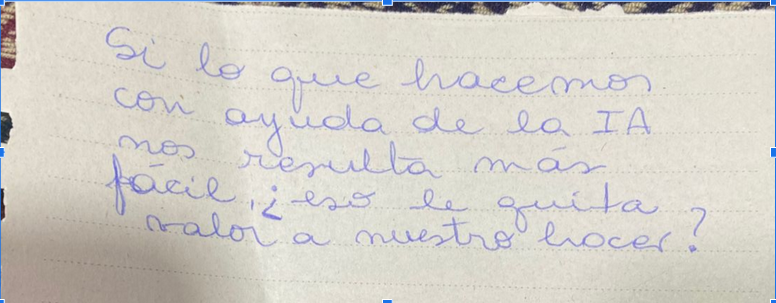 Si lo que hacemos
con ayuda de la IA
nos resulta más
fácil, ¿eso le quita
valor a nuestro hacer?